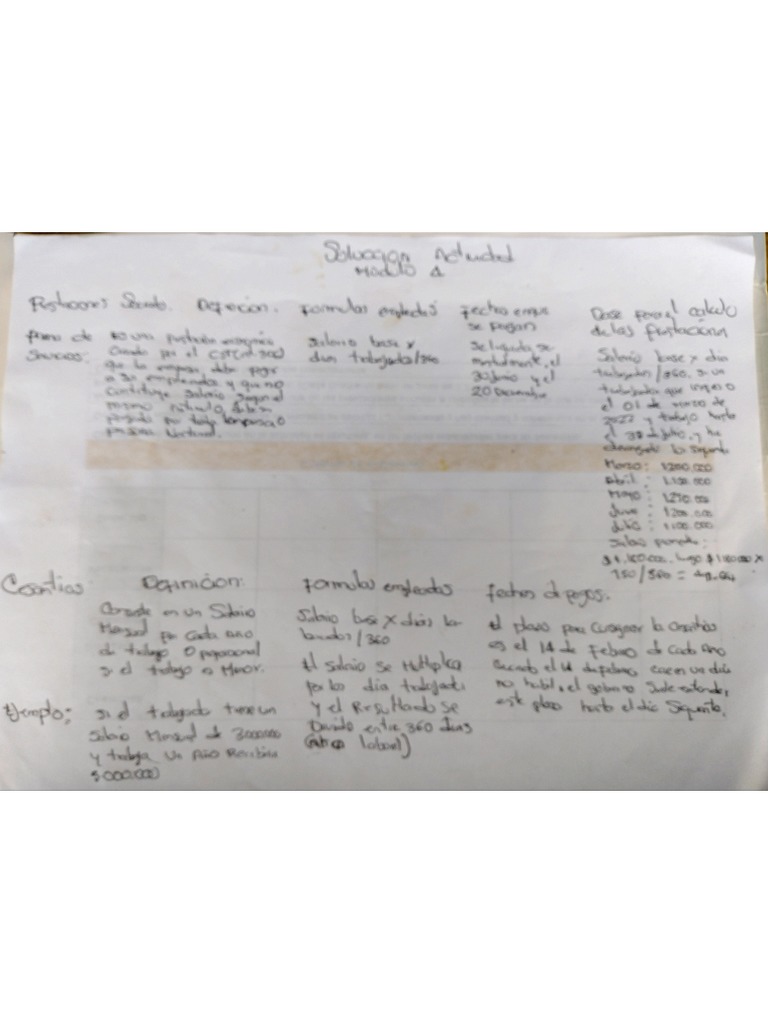 Solución Actividad
Modulo 1
Prestaciones Sociales. Definición. Formulas empleadas Fechas en que se pagan Base para el calculo de las Prestación
Prima de Servicios:
Es una prestación
creada por el
que la empresa debe pagar
a sus empleados y que no
constituye salario según el
mismo
pagado por
persona Natural.
Salario base x
dias trabajados/360
Se liquida se
el
30 Junio y el
20 Diciembre
Salario base x dias
trabajados/360, si un
trabajador que ingreso
el 01 de marzo de
2022 y trabajo hasta
el 30 de Julio, y ha
devengado lo siguiente
Marzo: 1.200.000
Abril: 1.100.000
Mayo: 1.270.000
Junio: 1.200.000
Julio: 1.100.000
Salario
150/360 =
Cesantias Definición: Formulas empleadas fechas de pagos.
Consiste en un Salario
Mensual por cada año
de trabajo o proporcional
si el trabajo es Menor.
Salario base x dias la
borados/360
El salario se Multiplica
por los dia trabajados
y el Resultado se
Divide entre 360 dias
laboral)
El plazo para consignar la Cesantías
es el 14 de Febrero de cada año
cuando el 14 de febrero cae en un dia
no habil, el gobierno Suele extender
este plazo hasta el dia Siguiente.
Ejemplo:
si el trabajado tiene un
Salario Mensual de 3000000
y trabaja un Año Recibira